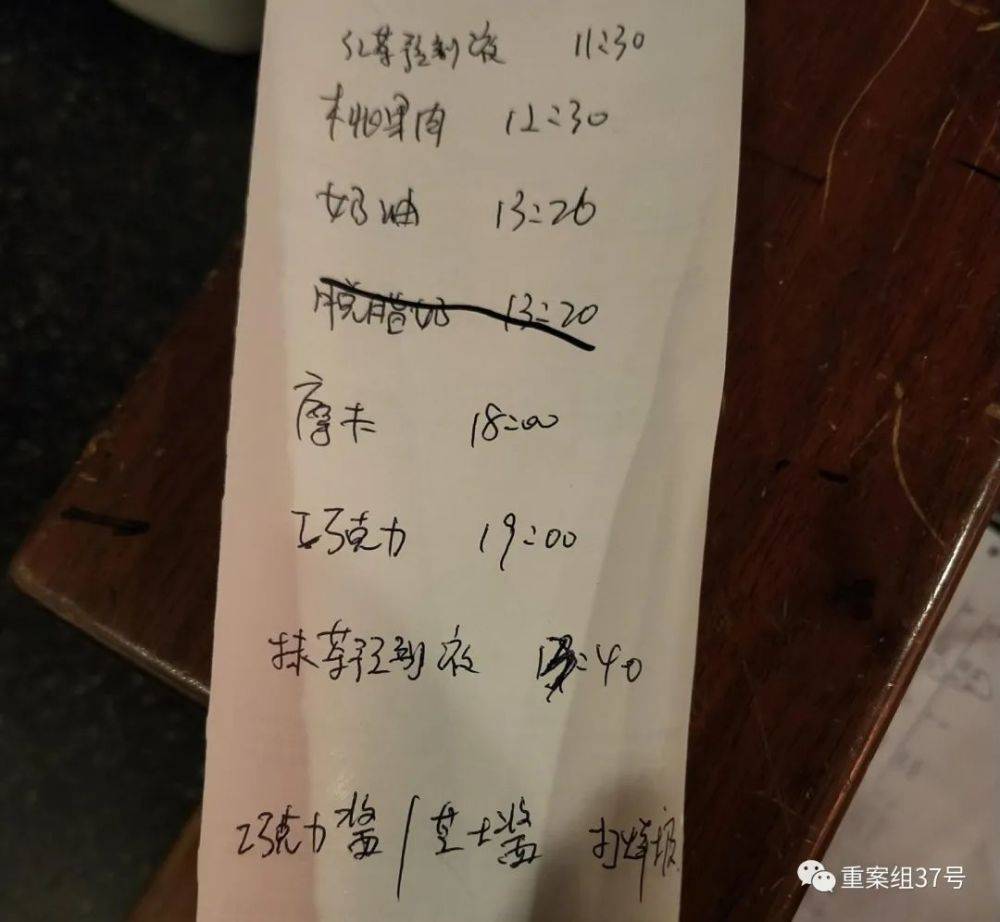 红茶预制液 11:30
桃果肉 12:30
奶油 13:26
脱脂奶 13:20
摩卡 18:00
巧克力 19:00
抹茶预制液 :40
巧克力酱 / 芝士酱 打烊报
重案组37号